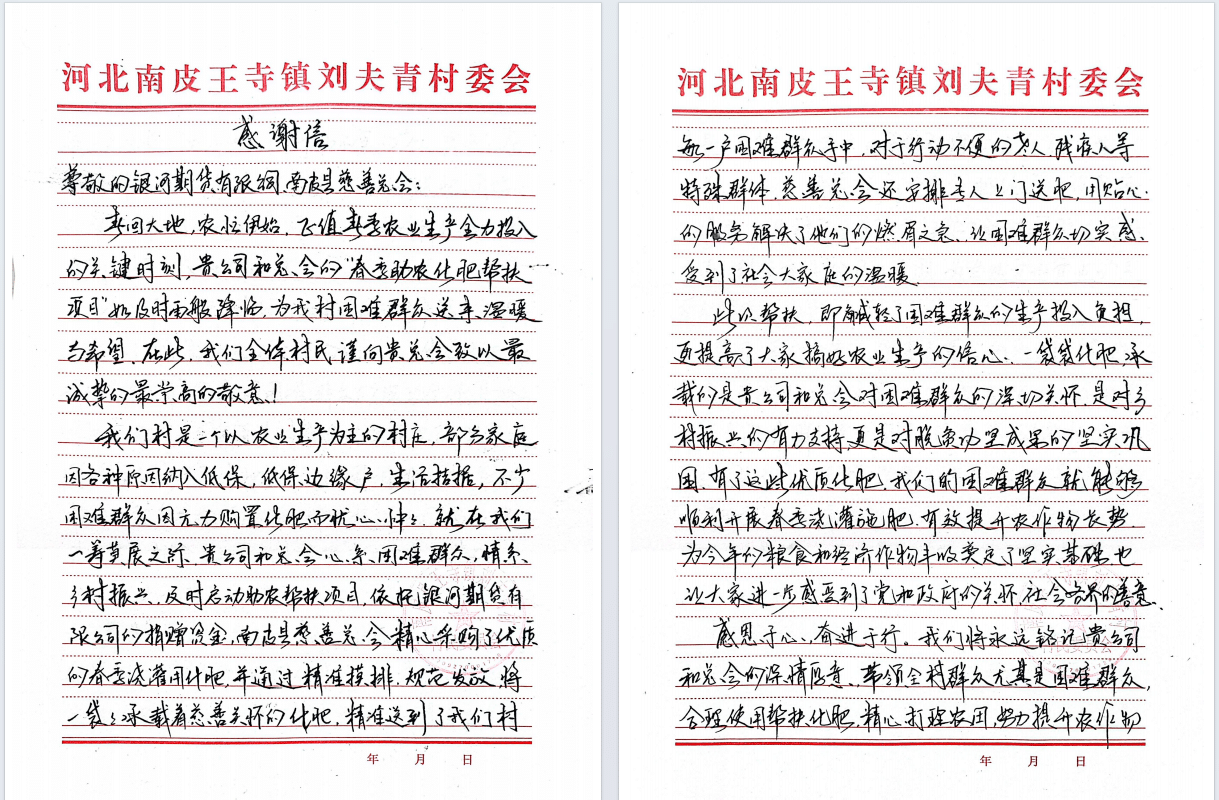 河北南皮王寺镇刘夫青村委会
感谢信
尊敬的银河期货有限公司、南皮县慈善总会：
春回大地，农忙伊始，正值春季农业生产全力投入
的关键时刻，贵公司和总会的“春季助农化肥帮扶
项目”如及时雨般降临，为我村困难群众送来温暖
与希望。在此，我们全体村民谨向贵总会致以最
诚挚的最崇高的敬意！
我们村是一个以农业生产为主的村庄，部分家庭
因各种原因纳入低保，低保边缘户，生活拮据，不少
困难群众因无力购置化肥而忧心忡忡，就在我们
一筹莫展之际，贵公司和总会心系困难群众，情系
乡村振兴，及时启动助农帮扶项目，依托银河期货有
限公司的捐赠资金，南皮县慈善总会精心采购了优质
的春季浇灌用化肥，并通过精准摸排、规范发放，将
一袋袋承载着慈善关怀的化肥，精准送到了我们村
年 月 日
河北南皮王寺镇刘夫青村委会
每一户困难群众手中，对于行动不便的老人、残疾人等
特殊群体，慈善总会还安排专人上门送肥，用贴心
的服务解决了他们的燃眉之急，让困难群众切实感
受到了社会大家庭的温暖。
此次帮扶，即减轻了困难群众的生产投入负担，
更提高了大家搞好农业生产的信心。一袋袋化肥，承
载的是贵公司和总会对困难群众的深切关怀，是对乡
村振兴的有力支持，更是对脱贫攻坚成果的坚实巩
固，有了这些优质化肥，我们的困难群众就能够
顺利开展春季浇灌施肥，有效提升农作物长势，
为今年份粮食和经济作物丰收奠定了坚实基础，也
让大家进一步感受到了党和政府的关怀，社会各界的善意。
感恩于心，奋进于行。我们将永远铭记贵公司
和总会的深情厚意，带领全村群众尤其是困难群众，
合理使用帮扶化肥，精心打理农田，努力提升农作物
年 月 日